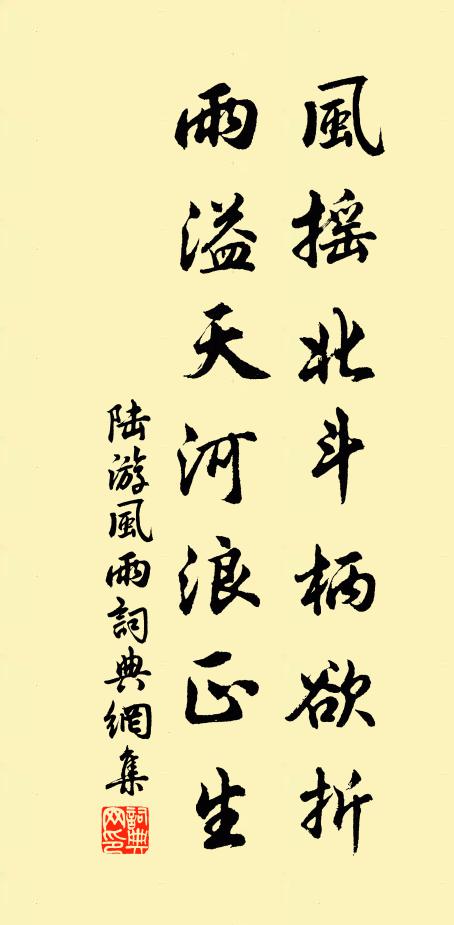 風摇北斗柄欲折
雨溢天河浪正生
陆游風雨詞典網集
詞典
网印